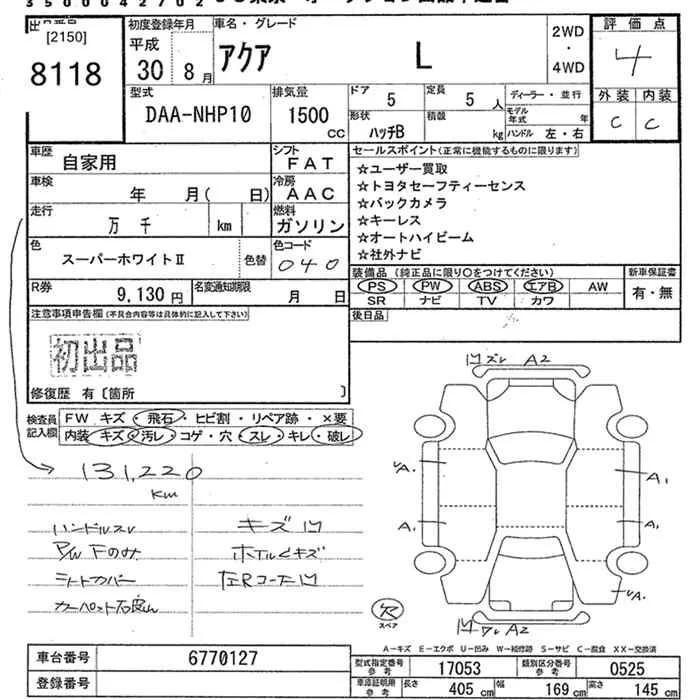 3500042702
出品番号
[2150]
8118
初度登録年月
平成
30 8月
車名・グレード
アクア L
2WD
・
4WD
評価点
4
外装 内装
C C
型式
DAA-NHP10
排気量
1500
cc
ドア 5
定員 5 人
形状 ハッチB
積載 kg
ディーラー・並行
モデル年式 年
ハンドル 左・右
車歴 自家用
シフト FAT
車検 年 月( 日)
冷房 AAC
走行 万 千 km
燃料 ガソリン
色 スーパーホワイトⅡ 色替
色コード 040
R券 9,130円
名変通知期限 月 日
セールスポイント(正常に機能するものに限ります)
☆ユーザー買取
☆トヨタセーフティーセンス
☆バックカメラ
☆キーレス
☆オートハイビーム
☆社外ナビ
装備品(純正品に限り○をつけてください)
PS PW ABS エアB AW
SR ナビ TV カワ
新車保証書
有・無
後日品
注意事項申告欄(不具合内容等は具体的に記入して下さい)
初出品
修復歴 有〔箇所 〕
検査員
記入欄
FW キズ・飛石・ヒビ割・リペア跡・×要
内装・キズ・汚レ・コゲ・穴・スレ・キレ・破レ
131,220
km
ハンドルスレ
P/W Fのみ
シートカバー
カーペット石良ム
キズ凹
ホイルキズ
左Rコーナ凹
凹ズレ A2
A1
A1
A1
A1
A1
凹ワレ A2
スペア
A-キズ E-エクボ U-凹み W-補修跡 S-サビ C-腐食 XX-交換済
車台番号 6770127
登録番号
型式指定番号 参考 17053
類別区分番号 参考 0525
車庫証明用 参考 長さ 405 cm 幅 169 cm 高さ 145 cm